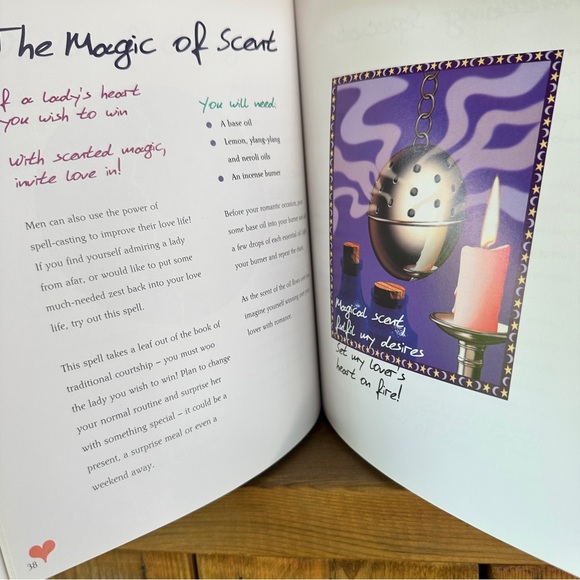 The Magic of Scent
If a lady's heart
you wish to win
With scented magic,
invite love in!
Men can also use the power of
spell-casting to improve their love life!
If you find yourself admiring a lady
from afar, or would like to put some
much-needed zest back into your love
life, try out this spell.
This spell takes a leaf out of the book of
traditional courtship – you must woo
the lady you wish to win! Plan to change
your normal routine and surprise her
with something special – it could be a
present, a surprise meal or even a
weekend away.
38
You will need:
A base oil
Lemon, ylang-ylang
and neroli oils
An incense burner
Before your romantic occasion, pour
some base oil into your burner
a few drops of each essential oil
your burner and repeat the
As the scent of the oil
imagine yourself
lover with romance.
Magical scent,
fulfil my desires
Set my lover's
heart on fire!